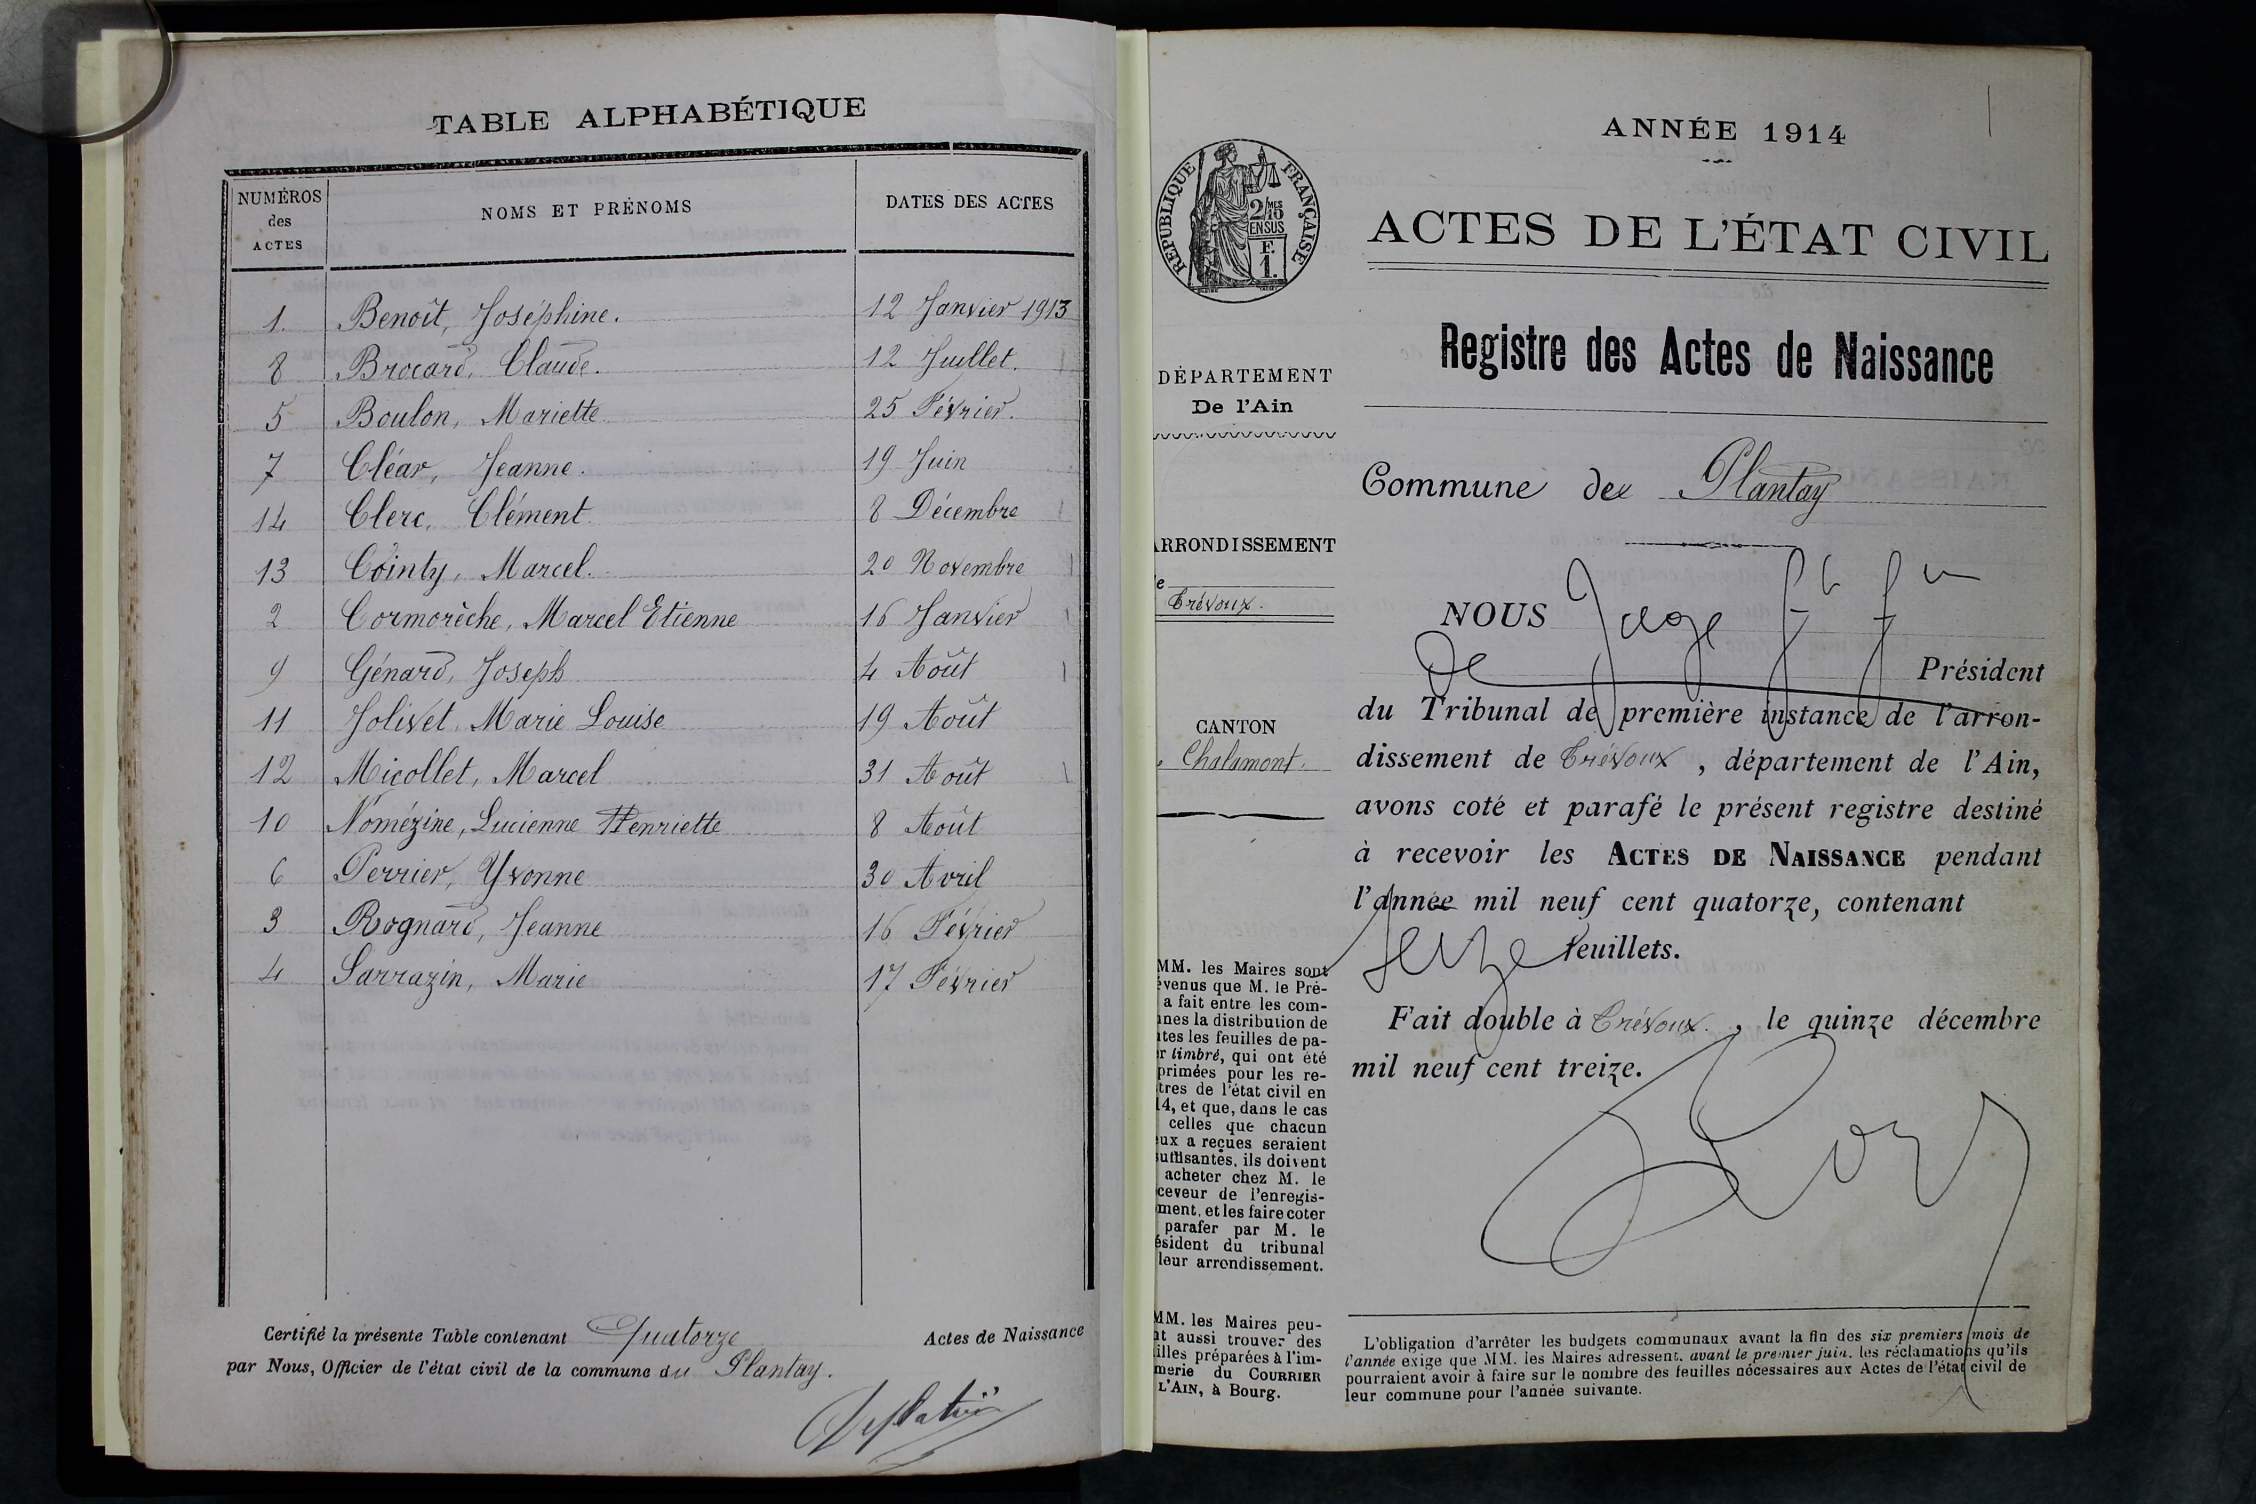 TABLE ALPHABÉTIQUE
NUMÉROS des ACTES NOMS ET PRÉNOMS DATES DES ACTES
1. Benoît, Joséphine. 12 Janvier 1913
8 Brocard, Claude. 12 Juillet.
5 Boulon, Mariette 25 Février.
7 Cléar, Jeanne. 19 Juin
14 Clerc, Clément 8 Décembre
13 Cointy, Marcel. 20 Novembre
2 Cormorèche, Marcel Etienne 16 Janvier
9 Génard, Joseph 4 Août
11 Jolivet Marie Louise 19 Août
12 Micollet, Marcel 31 Août
10 Nomézine, Lucienne Henriette 8 Août
6 Perrier, Yvonne 30 Avril
3 Rognard, Jeanne 16 Février
4 Sarrazin, Marie 17 Février
Certifié la présente Table contenant Quatorze Actes de Naissance
par Nous, Officier de l'état civil de la commune du Plantay.
ANNÉE 1914
RÉPUBLIQUE FRANÇAISE
2/10 MES
EN SUS
F.
1.
ACTES DE L'ÉTAT CIVIL
Registre des Actes de Naissance
DÉPARTEMENT
De l'Ain
Commune de Plantay
ARRONDISSEMENT
e
Trévoux.
CANTON
Chalamont.
NOUS Juge
De Président
du Tribunal de première instance de l'arron-
dissement de Trévoux, département de l'Ain,
avons coté et parafé le présent registre destiné
à recevoir les ACTES DE NAISSANCE pendant
l'année mil neuf cent quatorze, contenant
seize feuillets.
Fait double à Trévoux, le quinze décembre
mil neuf cent treize.
MM. les Maires sont
évenus que M. le Pré-
a fait entre les com-
nes la distribution de
tes les feuilles de pa-
r timbré, qui ont été
primées pour les re-
tres de l'état civil en
14, et que, dans le cas
celles que chacun
eux a reçues seraient
suffisantes, ils doivent
acheter chez M. le
ceveur de l'enregis-
ment, et les faire coter
parafer par M. le
ésident du tribunal
leur arrondissement.
MM. les Maires peu-
nt aussi trouver des
illes préparées à l'im-
merie du COURRIER
L'AIN, à Bourg.
L'obligation d'arrêter les budgets communaux avant la fin des six premiers mois de
l'année exige que MM. les Maires adressent, avant le premier juin, les réclamations qu'ils
pourraient avoir à faire sur le nombre des feuilles nécessaires aux Actes de l'état civil de
leur commune pour l'année suivante.